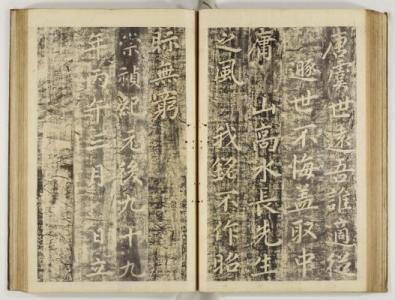 唐虞世遠吾誰適從
遯世不悔盖取中
庸 山高水長先生
之風 我銘不作昭
眎無窮
崇禎紀元後九十九
年丙午三月 日立